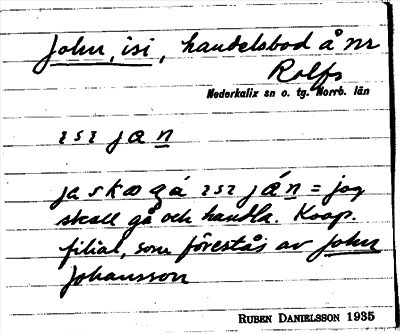 John, isi, handelsbod å nr
Rolfs
Nederkalix sn o. tg. Norrb. län
ısı jæn
ja skæ gá ısı jǽn = jag
skall gå och handla. Koop.
filial, som förestås av John
Johansson
RUBEN DANIELSSON 1935